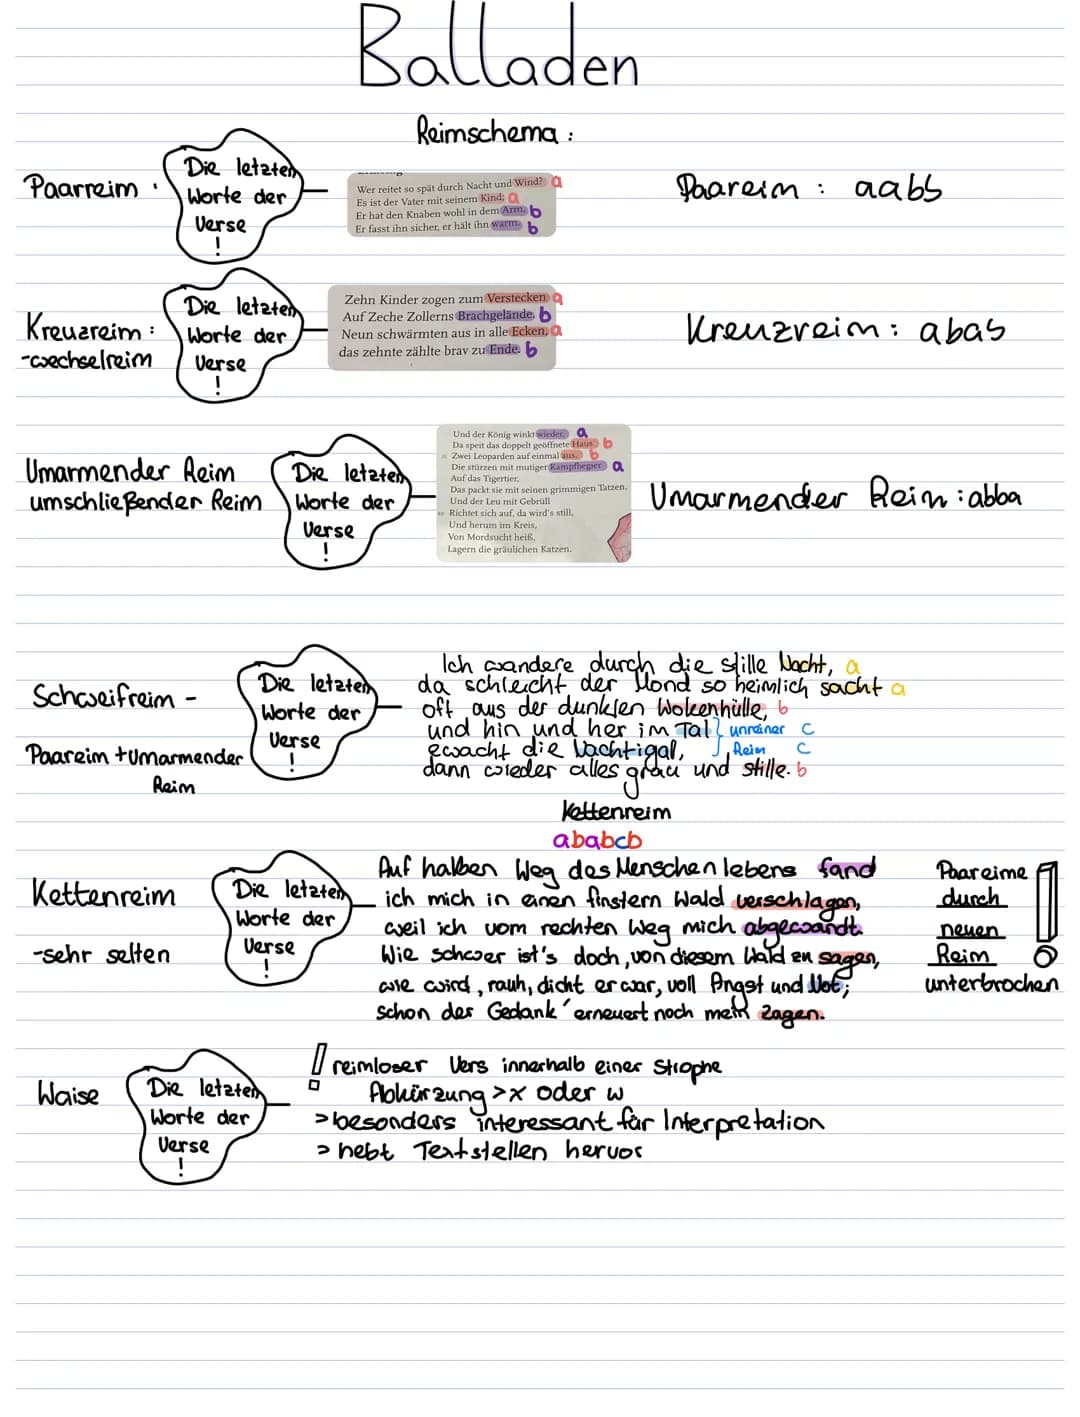 Balladen
Reimschema :
Paarreim :
Die letzten
Worte der
Verse
!
Wer reitet so spät durch Nacht und Wind? a
Es ist der Vater mit seinem Kind; a
Er hat den Knaben wohl in dem Arm, b
Er fasst ihn sicher, er hält ihn warm. b
Paareim : aabb
Kreuzreim :
-wechselreim
Die letzten
Worte der
Verse
!
Zehn Kinder zogen zum Verstecken a
Auf Zeche Zollerns Brachgelände. b
Neun schwärmten aus in alle Ecken, a
das zehnte zählte brav zu Ende. b
Kreuzreim : abab
Umarmender Reim
umschließender Reim
Die letzten
Worte der
Verse
!
Und der König winkt wieder, a
Da speit das doppelt geöffnete Haus b
Zwei Leoparden auf einmal aus, b
Die stürzen mit mutiger Kampfbegier a
Auf das Tigertier,
Das packt sie mit seinen grimmigen Tatzen,
Und der Leu mit Gebrüll
Richtet sich auf, da wird's still,
Und herum im Kreis,
Von Mordsucht heiß,
Lagern die gräulichen Katzen.
Umarmender Reim : abba
Schweifreim -
Paareim + Umarmender
Reim
Die letzten
Worte der
Verse
!
Ich wandere durch die stille Nacht, a
da schleicht der Mond so heimlich sacht a
oft aus der dunklen Wolkenhülle, b
und hin und her im Tal } unreiner c
ewacht die Nachtigal, Reim c
dann wieder alles grau und stille. b
Kettenreim
ababcb
Kettenreim
-sehr selten
Die letzten
Worte der
Verse
!
Auf halben Weg des Menschenlebens fand
ich mich in einen finstern Wald verschlagen,
weil ich vom rechten Weg mich abgewandt.
Wie schwer ist's doch, von diesem Wald zu sagen,
wie wird, rauh, dicht er war, voll Angst und Not;
schon der Gedank' erneuert noch mein Zagen.
Paareime
durch
neuen
Reim
unterbrochen
!
Waise
Die letzten
Worte der
Verse
!
! reimloser Vers innerhalb einer Strophe
Abkürzung > x oder w
> besonders interessant für Interpretation
> hebt Textstellen hervor